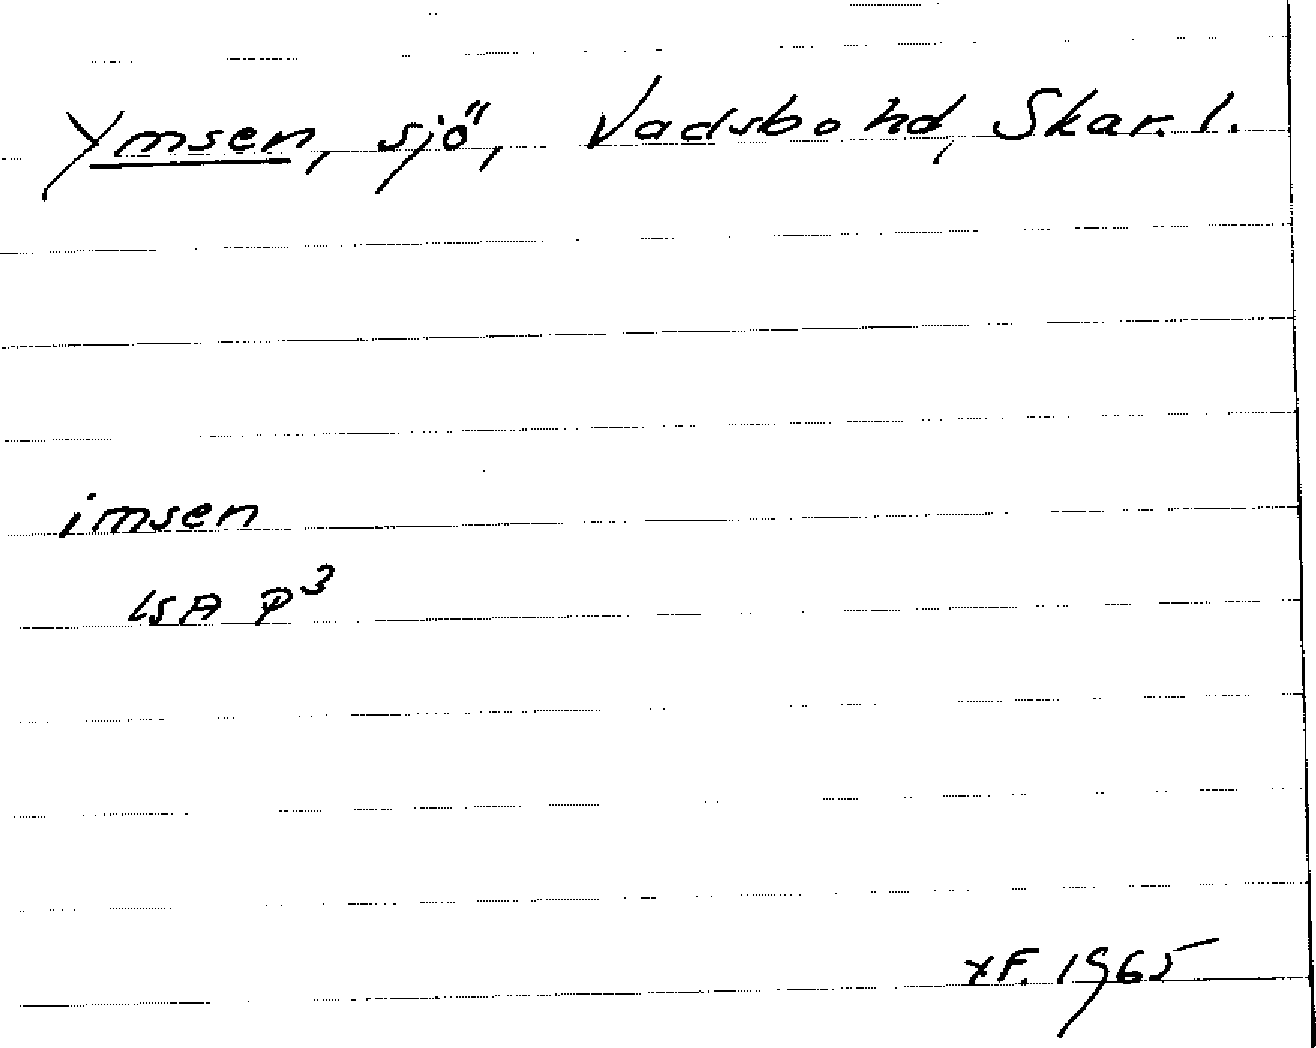 Ymsen, sjö, Vadsbo hd, Skar. l.
imsen
LSA P³
XF. 1965